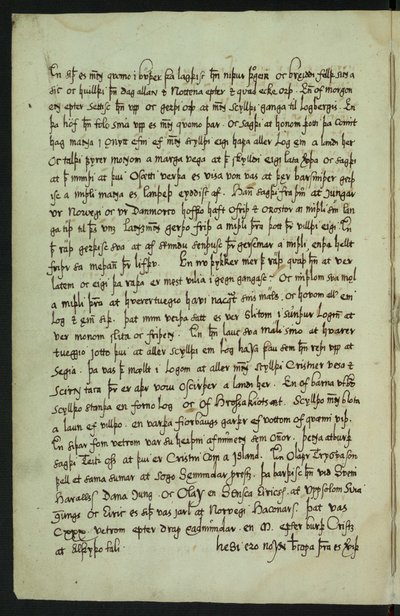 En siþ es menn quomo i buþer þa lagþisc hann niþur þorgeir oc breiddi felld sinn a
sic oc huilþi þann dag allan oc Nottena epter oc quad ecke orþ. En of morgon
enn epter settisc hann upp oc gerþi orþ at menn scylldi ganga til Logbergis. En
þa hóf hann tolo sina upp es menn quomo þar. oc sagþi at honom þotti þa comit
hag manna i onytt efni ef menn scylldi eigi hafa aller Log ein a landi her
oc talþi fyrer monnom a marga vega at þat skylldi eigi lata verþa oc sagþi
at þat mundi at þui osætti verþa es visa von vas at þær barsmiþer gerþ
isc a miþli manna es landeþ eyddisc af. Hann sagþi fra þui at Cunungar
ur Norvegi oc ur Danmorco hofþo haft ofriþ oc orostor a miþli sin lan
ga tiþ til þess unz landsmenn gerþo friþ a miþli þeirra þott þeir villdi eigi. En
þat raþ gerþisc sva at af stundu sendusc þeir gersemar a miþli enda hellt
friþr sa meþan þeir lifþo. En nu þykker mer þat raþ quaþ hann at ver
latem oc eigi þa raþa er mest vilia i gegn gangasc. oc miþlom sva mal
a miþli þeirra at hvarertueggio hafi nacquat sins mals. oc hofom aller ein
Log oc einn siþ. þat mon verþa satt es ver slitom i sundur Login at
ver monom slita oc friþenn. En hann lauc sva mali sino at hvarer
tueggio jotto þui at aller scylldi ein log hafa þau sem hann reþi upp at
segia. þa vas þat mællt i Logom at aller menn scylldi Cristner vesa oc
scirn taca þeir er aþr voru oscirþer a landi her. En of barna utburþ
scylldo standa en forno log oc of hrossakiotsat. Scylldo menn blota
a laun ef villdo. en varþa fiorbaugs garþr ef vottom of quæmi viþ.
En siþar fom vetrom var su heiþni af numin sem onnor. þenna atburþ
sagþi Teitr oss at þui er Cristni com a Island. En Olafr Tryggva son
fell et sama sumar at sogo Sæmundar prestz. þa barþisc hann viþ Svein
Haralldz son Dana cunung. oc Olaf en Sensca Eirics son at Uppsolom Svia
cunungs oc Eiric es siþan vas jarl at Norvegi Haconar son. þat vas
CXXX vetrom epter drap Eadmundar. en M. epter burþ Cristz
at alþyþo tali.